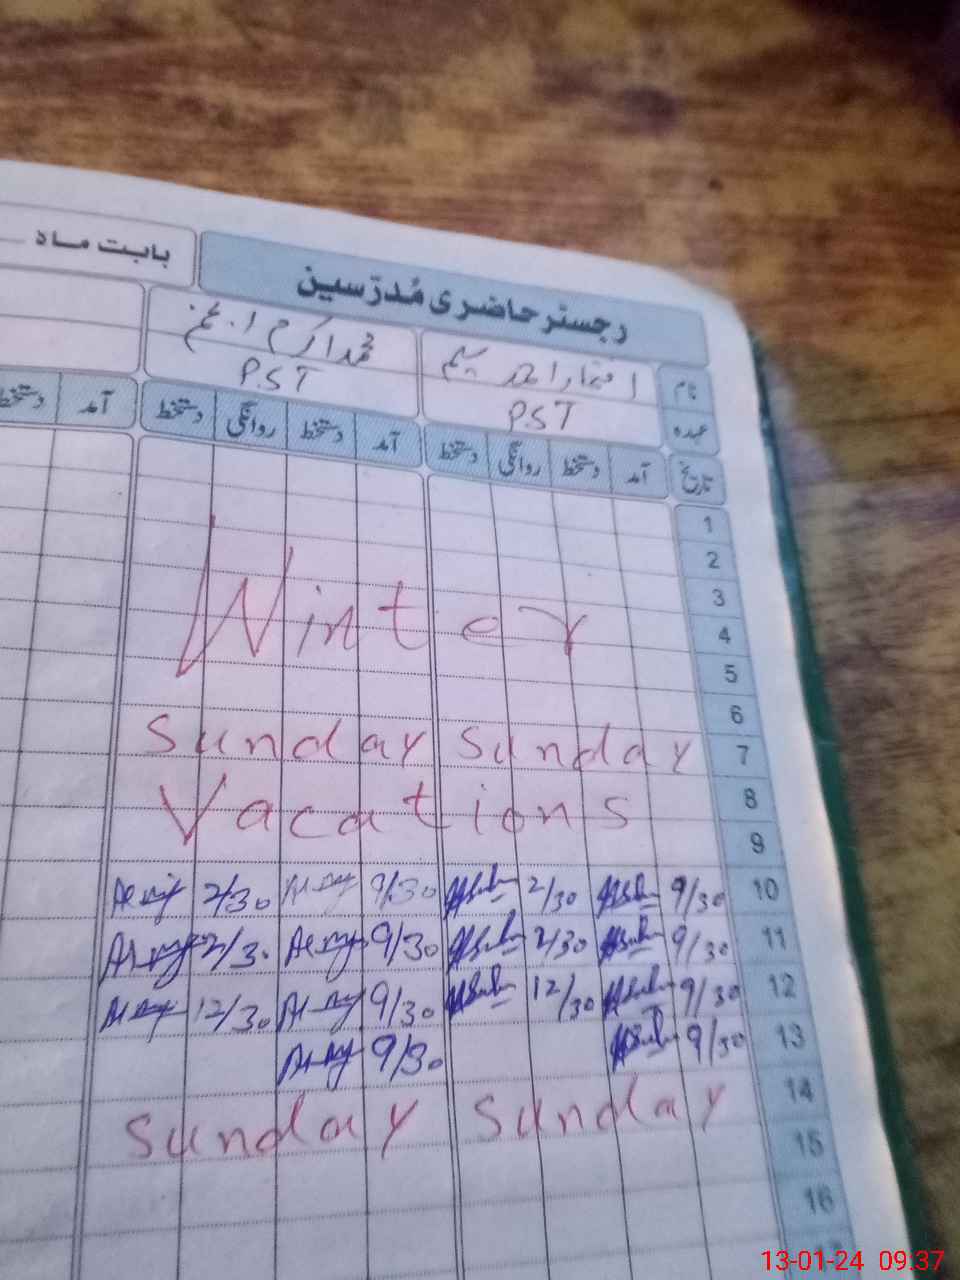 رجسٹر حاضری مُدرّسین بابت ماہ
نام افتخار احمد محمد اکرم
عہدہ P.S.T P.S.T
تاریخ آمد دستخط روانگی دستخط آمد دستخط روانگی دستخط آمد دستخط
1
2
3
Winter
4
5
6
Sunday Sunday 7
Vacations 8
9
2/30 9/30 2/30 9/30 10
2/30 9/30 2/30 9/30 11
12/30 9/30 12/30 9/30 12
9/30 9/30 13
Sunday Sunday 14
15
16
13-01-24 09:37